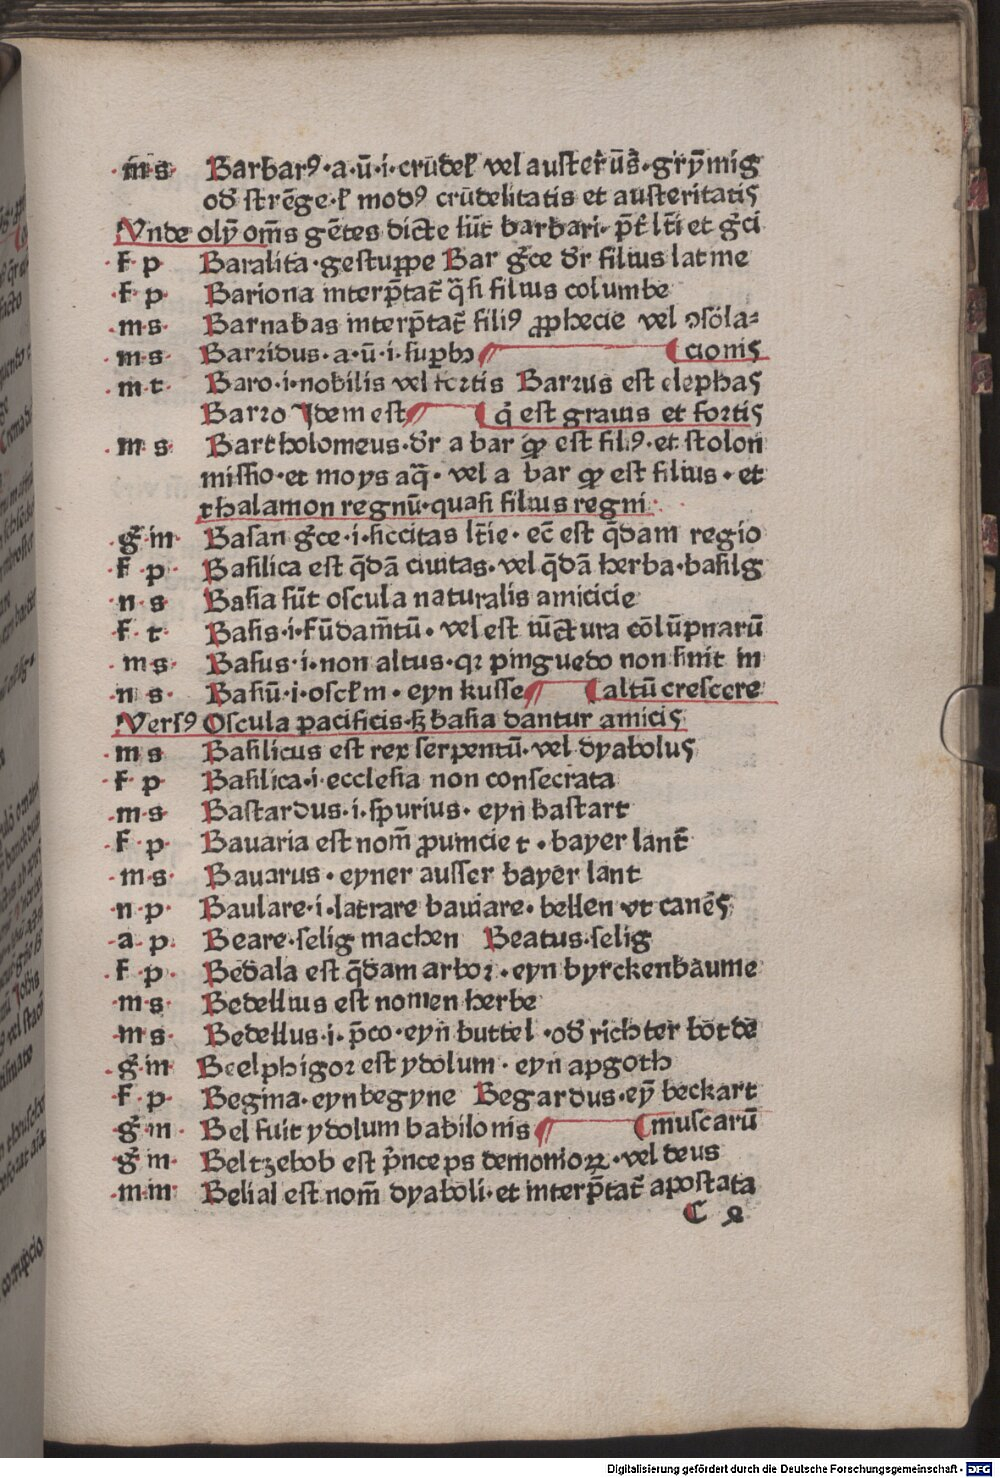 m s Barbarꝰ·a·ū·i·crūdelꝭ vel auster̄ ūs̄·grȳmig
od̄ strēge·ꝉ modꝰ crūdelitatis et austeritatis
Vnde olȳ om̄s gētes dicte sūt barbari· p̄t lt̄i et gͥci
f p Baralita·gestuꝑpe Bar gͣce dr̄ filius latine
f p Bariona interp̄tat̄ q̄si filius columbe
m s Barnabas interp̄tat̄ filiꝰ ꝓphecie vel ↄsōla⸗
m s Barridus·a·ū·i·suꝑbꝰ ¶ cionis
m t Baro·i·nobilis vel fortis Barrus est elephas
Barro Idem est ¶ q̇ est grauis et fortis
m s Bartholomeus·dr̄ a bar qͦ est filꝰ·et stolon
missio·et moys aq̄· vel a bar qͦ est filius·et
thalamon regnū·quasi filius regni·
g̈ m Basan gͣce·i·siccitas lt̄ie·ec̄ est q̄dam regio
f p Basilica est q̄dā ciuitas·vel q̄dā herba·basilg
n s Basia sūt oscula naturalis amicicie
f t Basis·i·fūdam̄tū·vel est iūctura cōlūpnarū
m s Basus·i·non altus·qꝛ pinguedo non sinit in
n s Basiū·i·oscłm·eyn kusse ¶ altū crescere
Versꝰ Oscula pacificis·sꝫ basia dantur amicis
m s Basilicus est rex serpentū·vel dyabolus
f p Basilica·i·ecclesia non consecrata
m s Bastardus·i·spurius·eyn bastart
f p Bauaria est nom̄ ꝓuincie t·bayer lant̄
m s Bauarus·eyner ausser bayer lant
n p Baulare·i·latrare bauiare·bellen vt canēs
a p Beare·selig machen Beatus·selig
f p Bedala est q̄dam arboꝛ·eyn byrckenbaume
m s Bedellius est nomen herbe
m s Bedellus·i·p̄co·eyn buttel·od̄ richter botdē
g̈ m Beelphigoꝛ est ydolum·eyn apgoth
f p Begina·eyn begyne Begardus·eȳ beckart
g̈ m Bel fuit ydolum babilonis ¶ muscarū
g̈ m Beltzebob est p̄nceps demonioꝝ·vel deus
m m Belial est nom̄ dyaboli·et interp̄tat̄ apostata
C 2
Digitalisierung gefördert durch die Deutsche Forschungsgemeinschaft - DFG